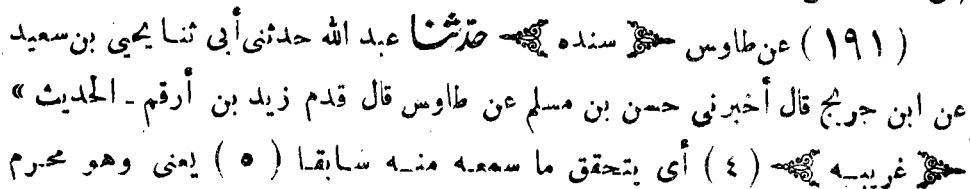 (١٩١) عن طاوس ﴿ سنده ﴾ حدّثنا عبد الله حدثنى أبى ثنا يحيى بن سعيد
عن ابن جريج قال أخبرنى حسن بن مسلم عن طاوس قال قدم زيد بن أرقم ـ الحديث »
﴿ غريبه ﴾ (٤) أى يتحقق ما سمعه منه سابقا (٥) يعنى وهو محرم